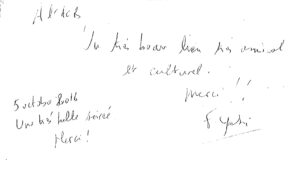 Un très beau lien très amical
et culturel.
Merci !!
5 octobre 2016
Une très belle soirée
Merci !